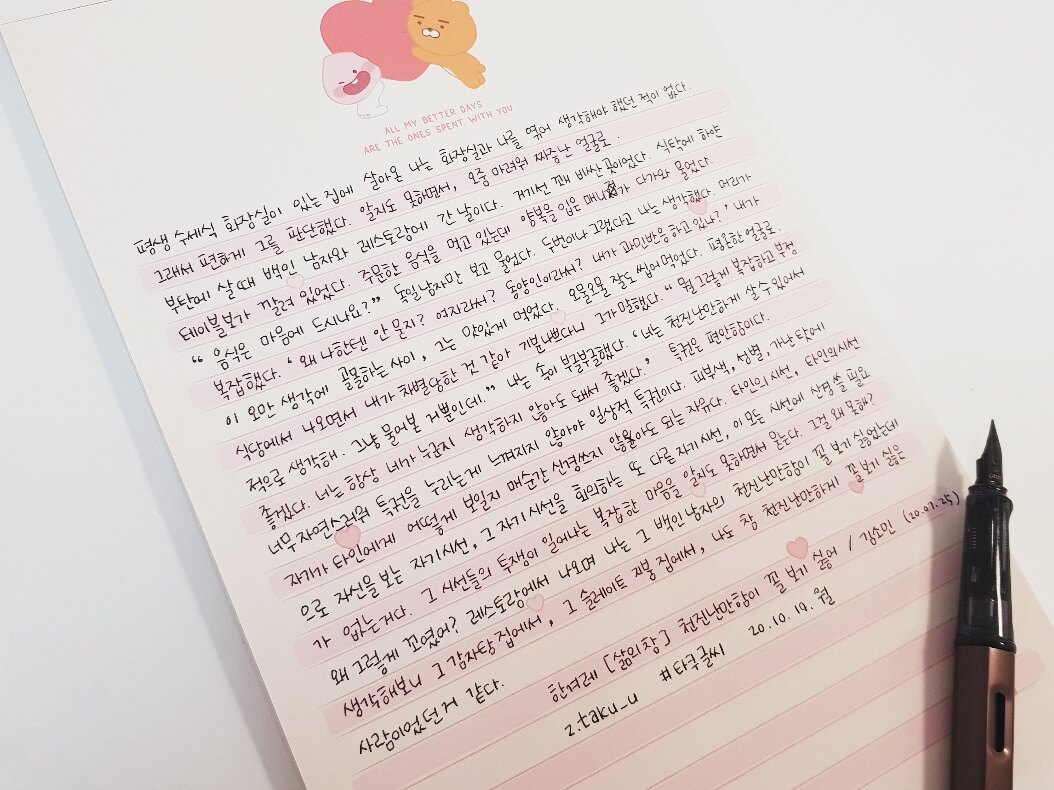 ALL MY BETTER DAYS
ARE THE ONES SPENT WITH YOU
평생 수세식 화장실이 있는 집에 살아온 나는 화장실과 나를 엮어 생각해야 했던 적이 없다.
그래서 편하게 그를 판단했다. 알지도 못하면서, 오줌 마려워 짜증난 얼굴로.
부탄에 살 때 백인 남자와 레스토랑에 간 날이다. 거기선 꽤 비싼 곳이었다. 식탁에 하얀
테이블보가 깔려 있었다. 주문한 음식을 먹고 있는데 양복을 입은 매니저가 다가와 물었다.
"음식은 마음에 드시나요?" 독일남자만 보고 물었다. 두번이나 그랬다고 나는 생각했다. 머리가
복잡했다. '왜 나한텐 안 묻지? 여자라서? 동양인이라서? 내가 과민반응하고 있나?' 내가
이 오만 생각에 골몰하는 사이, 그는 맛있게 먹었다. 오물오물 잘도 씹어먹었다. 평온한 얼굴로.
식당에서 나오면서 내가 차별당한 것 같아 기분나쁘다니 그가 말했다. "뭘 그렇게 복잡하고 부정
적으로 생각해. 그냥 물어본 거뿐인데." 나는 속이 부글부글했다. '너는 천진난만하게 살 수 있어서
좋겠다. 너는 항상 네가 누군지 생각하지 않아도 돼서 좋겠다.' 특권은 편안함이다.
너무 자연스러워 특권을 누리는게 느껴지지 않아야 일상적 특권이다. 피부색, 성별, 가난 탓에
자기가 타인에게 어떻게 보일지 매순간 신경쓰지 않아도 되는 자유다. 타인의 시선, 타인의 시선
으로 자신을 보는 자기시선, 그 자기시선을 회의하는 또 다른 자기시선, 이 모든 시선에 신경 쓸 필요
가 없는거다. 그 시선들의 투쟁이 일어나는 복잡한 마음을 알지도 못하면서 묻는다. 그걸 왜 못해?
왜 그렇게 꼬였어? 레스토랑에서 나오며 나는 그 백인 남자의 천진난만함이 꼴 보기 싫었는데
생각해보니 그 감자탕 집에서, 그 슬레이트 지붕 집에서, 나도 참 천진난만하게 꼴 보기 싫은
사람이었던거 같다.
한겨레 [삶의창] 천진난만함이 꼴 보기 싫어 / 김소민 (20.07.25)
z.taku_u #타쿠글씨 20.10.19. 월